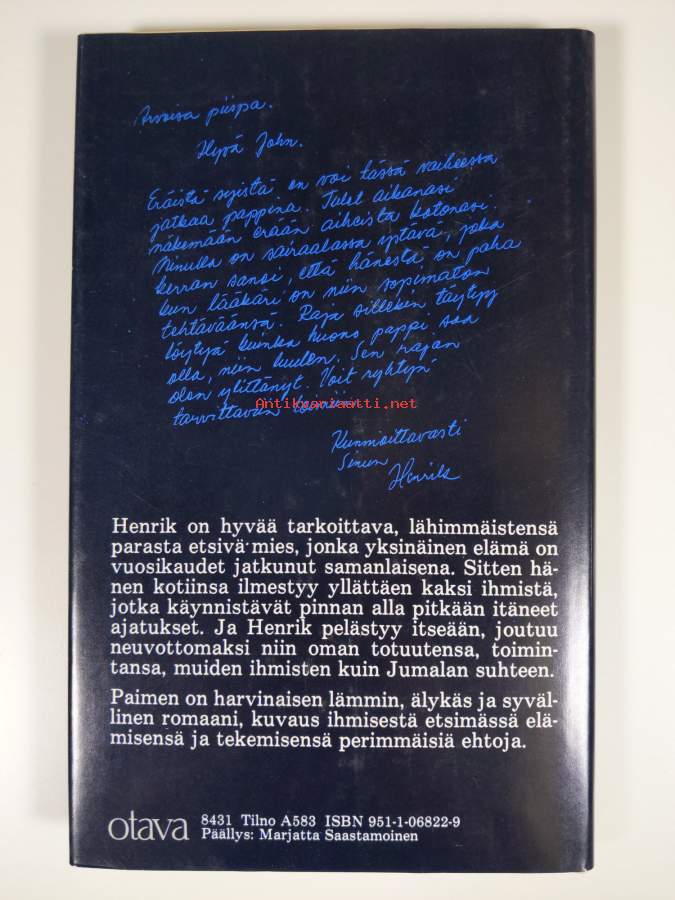 Arvoisa piispa.
Hyvä John.
Eräistä syistä en voi tässä vaiheessa
jatkaa pappina. Tulet aikanasi
näkemään erään aiheista kotonasi.
Minulla on sairaalassa ystävä, joka
kerran sanoi, että hänestä on paha
kun lääkäri on niin sopimaton
tehtäväänsä. Raja sillekin täytyy
löytyä kuinka huono pappi saa
olla, niin luulen. Sen rajan
olen ylittänyt. Voit ryhtyä
tarvittaviin
Antikvariaatti.net
Kunnioittavasti
Sinun
Henrik
Henrik on hyvää tarkoittava, lähimmäistensä
parasta etsivä mies, jonka yksinäinen elämä on
vuosikaudet jatkunut samanlaisena. Sitten hä-
nen kotiinsa ilmestyy yllättäen kaksi ihmistä,
jotka käynnistävät pinnan alla pitkään itäneet
ajatukset. Ja Henrik pelästyy itseään, joutuu
neuvottomaksi niin oman totuutensa, toimin-
tansa, muiden ihmisten kuin Jumalan suhteen.
Paimen on harvinaisen lämmin, älykäs ja syväl-
linen romaani, kuvaus ihmisestä etsimässä elä-
misensä ja tekemisensä perimmäisiä ehtoja.
otava
8431 Tilno A583 ISBN 951-1-06822-9
Päällys: Marjatta Saastamoinen